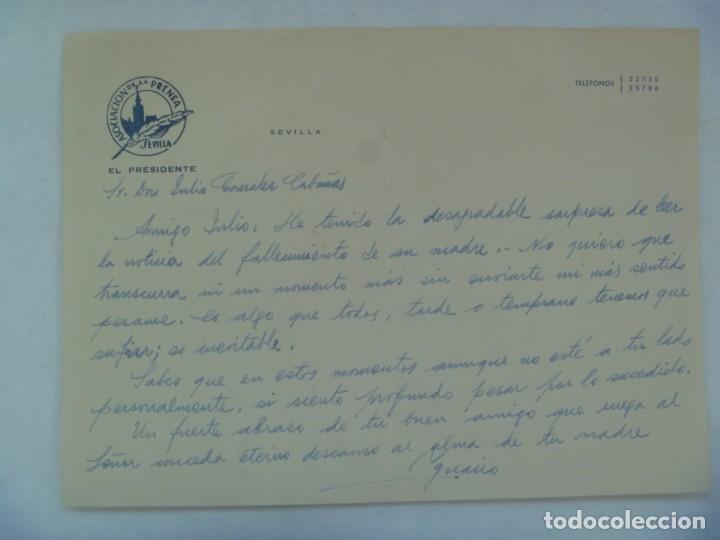 ASOCIACION DE LA PRENSA
SEVILLA
EL PRESIDENTE
SEVILLA
TELÉFONOS 22750
25786
Sr. Don Julio Gonzalez Cabañas
Amigo Julio: He tenido la desagradable sorpresa de leer
la noticia del fallecimiento de su madre.- No quiero que
transcurra ni un momento más sin enviarte mi más sentido
pesame. Es algo que todos, tarde o temprano tenemos que
sufrir; es inevitable.
Sabes que en estos momentos aunque no esté a tu lado
personalmente, si siento profundo pesar por lo sucedido.
Un fuerte abrazo de tu buen amigo que ruega al
Señor conceda eterno descanso al alma de tu madre
Ignacio
todocoleccion
todocoleccion.net